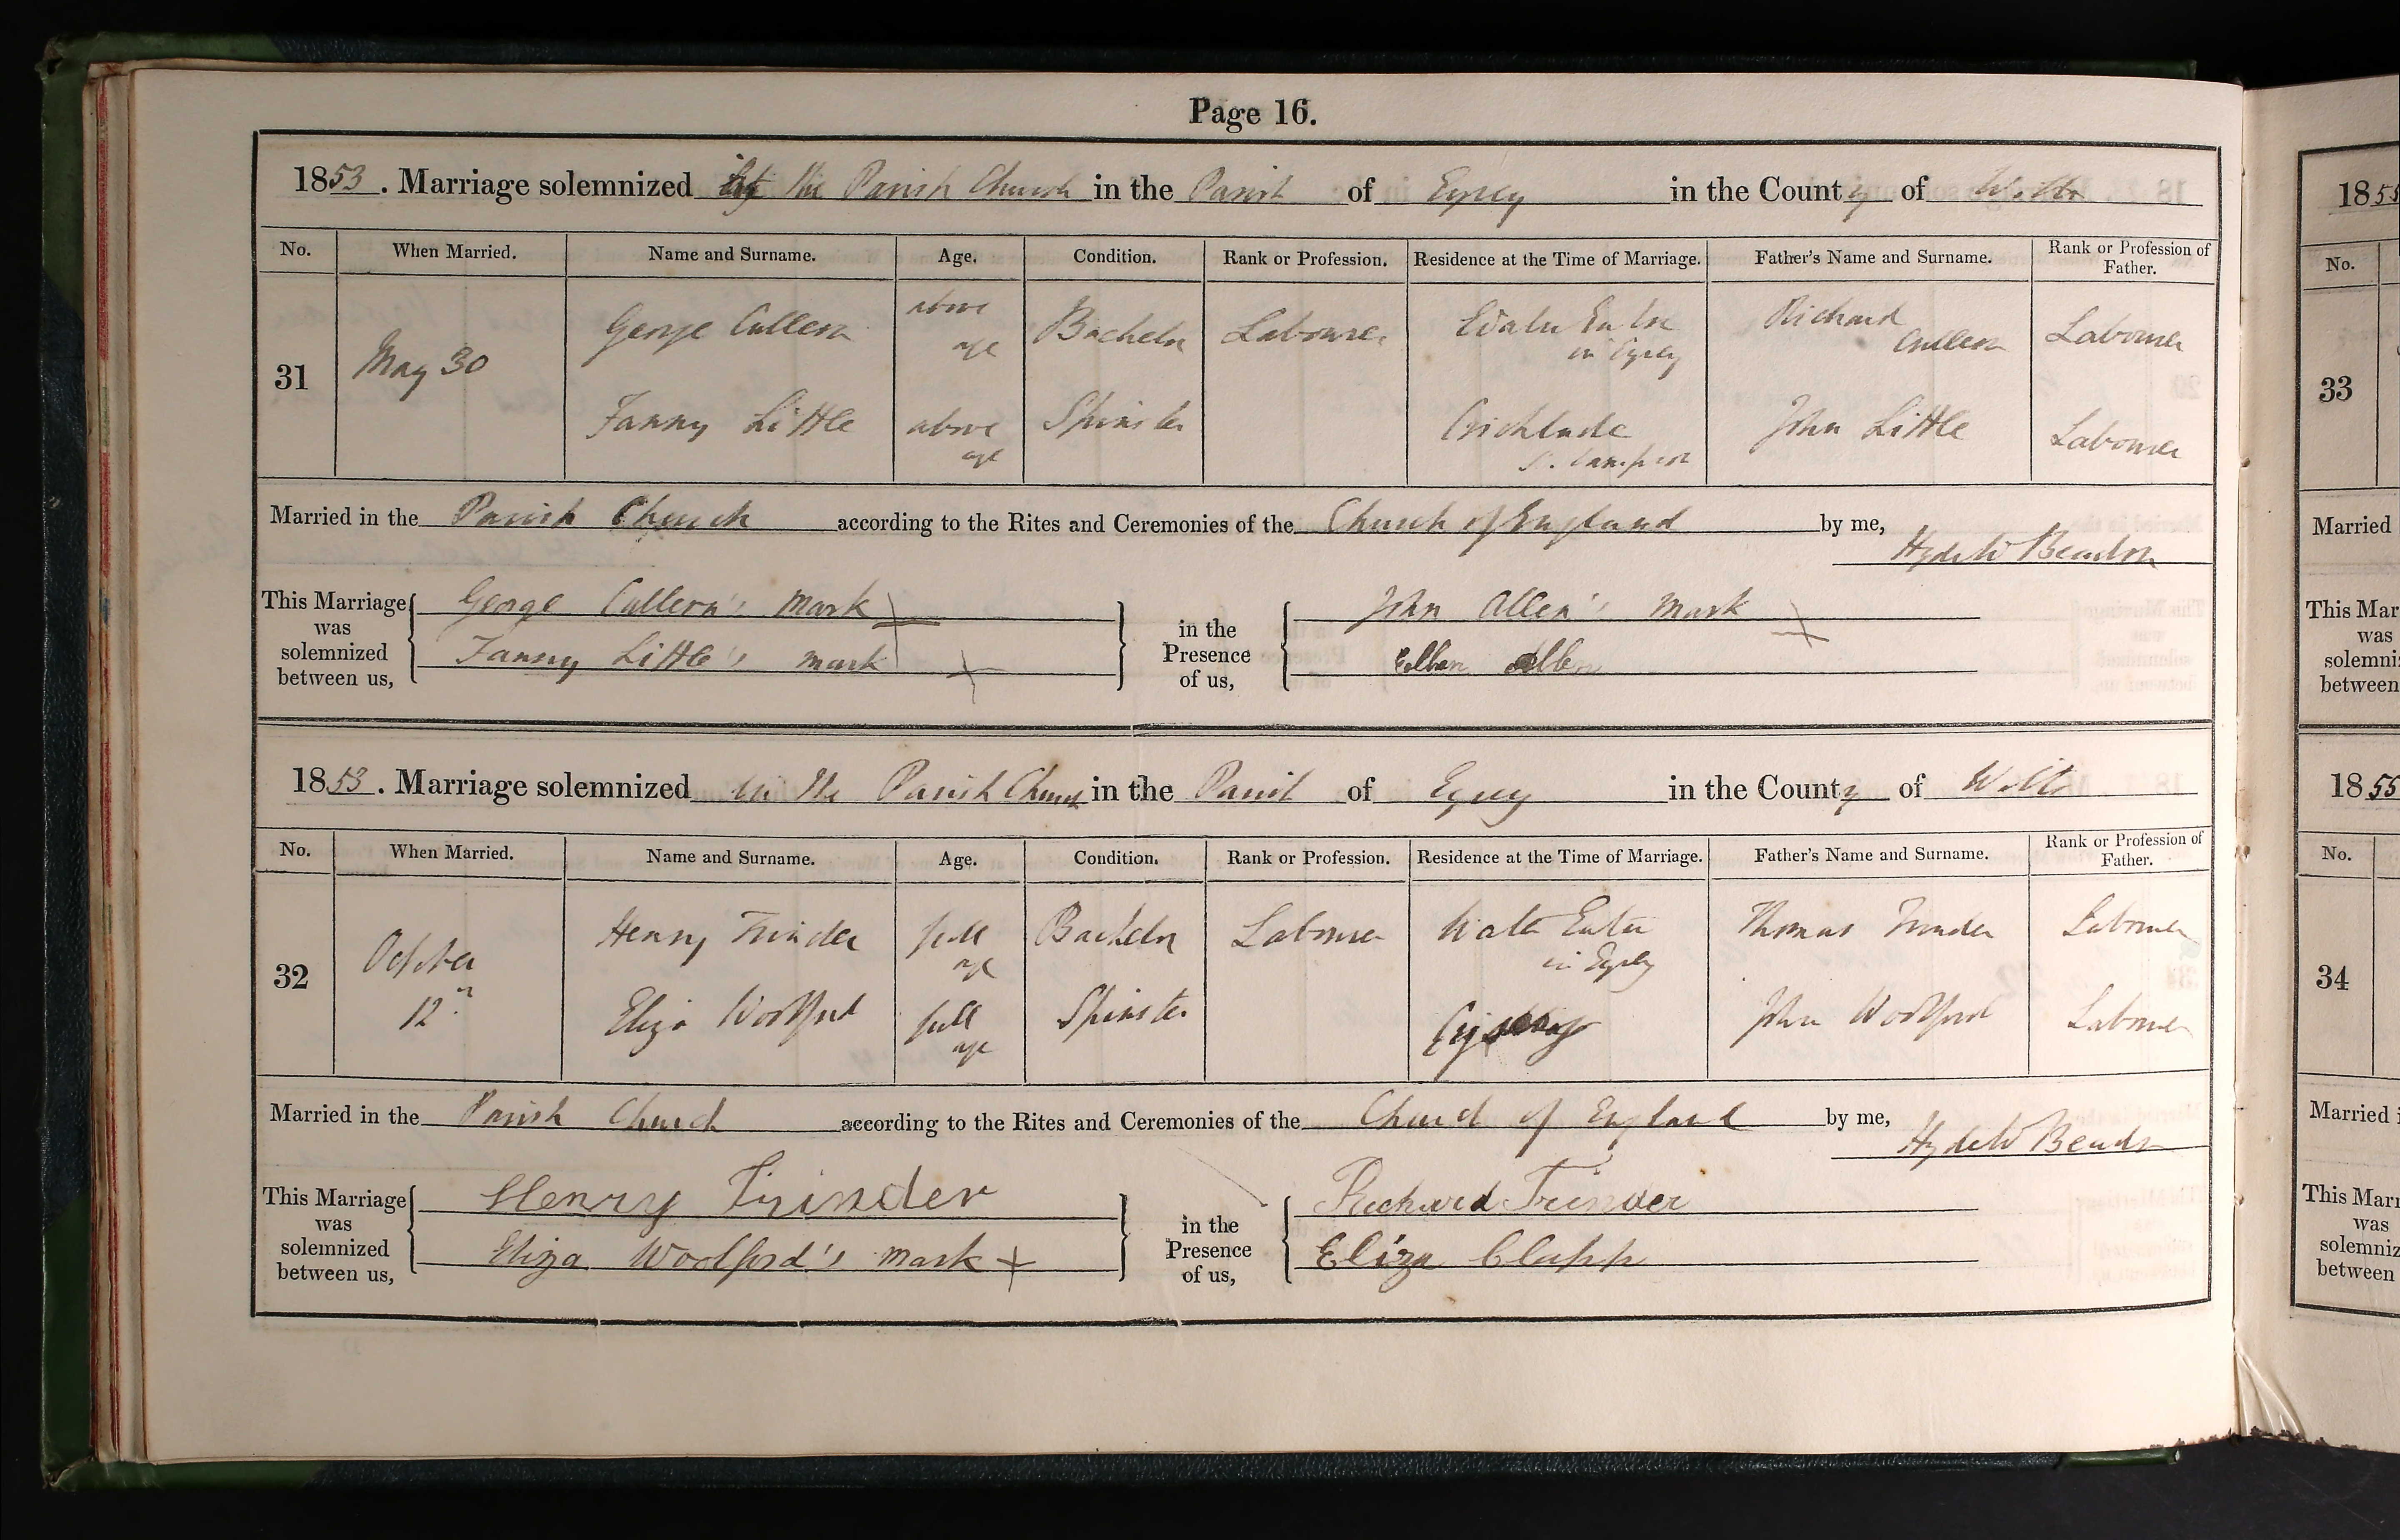 Page 16.
1853. Marriage solemnized in the Parish Church in the Parish of Eysey in the County of Wilts
No. When Married. Name and Surname. Age. Condition. Rank or Profession. Residence at the Time of Marriage. Father's Name and Surname. Rank or Profession of Father.
31 May 30 George Cullern above age Bachelor Labourer in Eysey Richard Cullern Labourer
Fanny Little above age Spinster Crichlade S. Sampson John Little Labourer
Married in the Parish Church according to the Rites and Ceremonies of the Church of England by me, Hyde W Beadon
This Marriage was solemnized between us, George Cullern's mark Fanny Little's mark in the Presence of us, John Allen's mark Ellen Allen
1853. Marriage solemnized in the Parish Church in the Parish of Eysey in the County of Wilts
No. When Married. Name and Surname. Age. Condition. Rank or Profession. Residence at the Time of Marriage. Father's Name and Surname. Rank or Profession of Father.
32 October 12 Henry Trinder full age Bachelor Labourer Water Eaton in Eysey Thomas Trinder Labourer
Eliza Woolford full age Spinster John Woolford Labourer
Married in the Parish Church according to the Rites and Ceremonies of the Church of England by me, Hyde W Beadon
This Marriage was solemnized between us, Henry Trinder Eliza Woolford's mark in the Presence of us, Richard Trinder Eliza Clapp
1855
No.
33
Married
This Mar
was
solemni
between
1855
No.
34
Married i
This Marr
was
solemniz
between